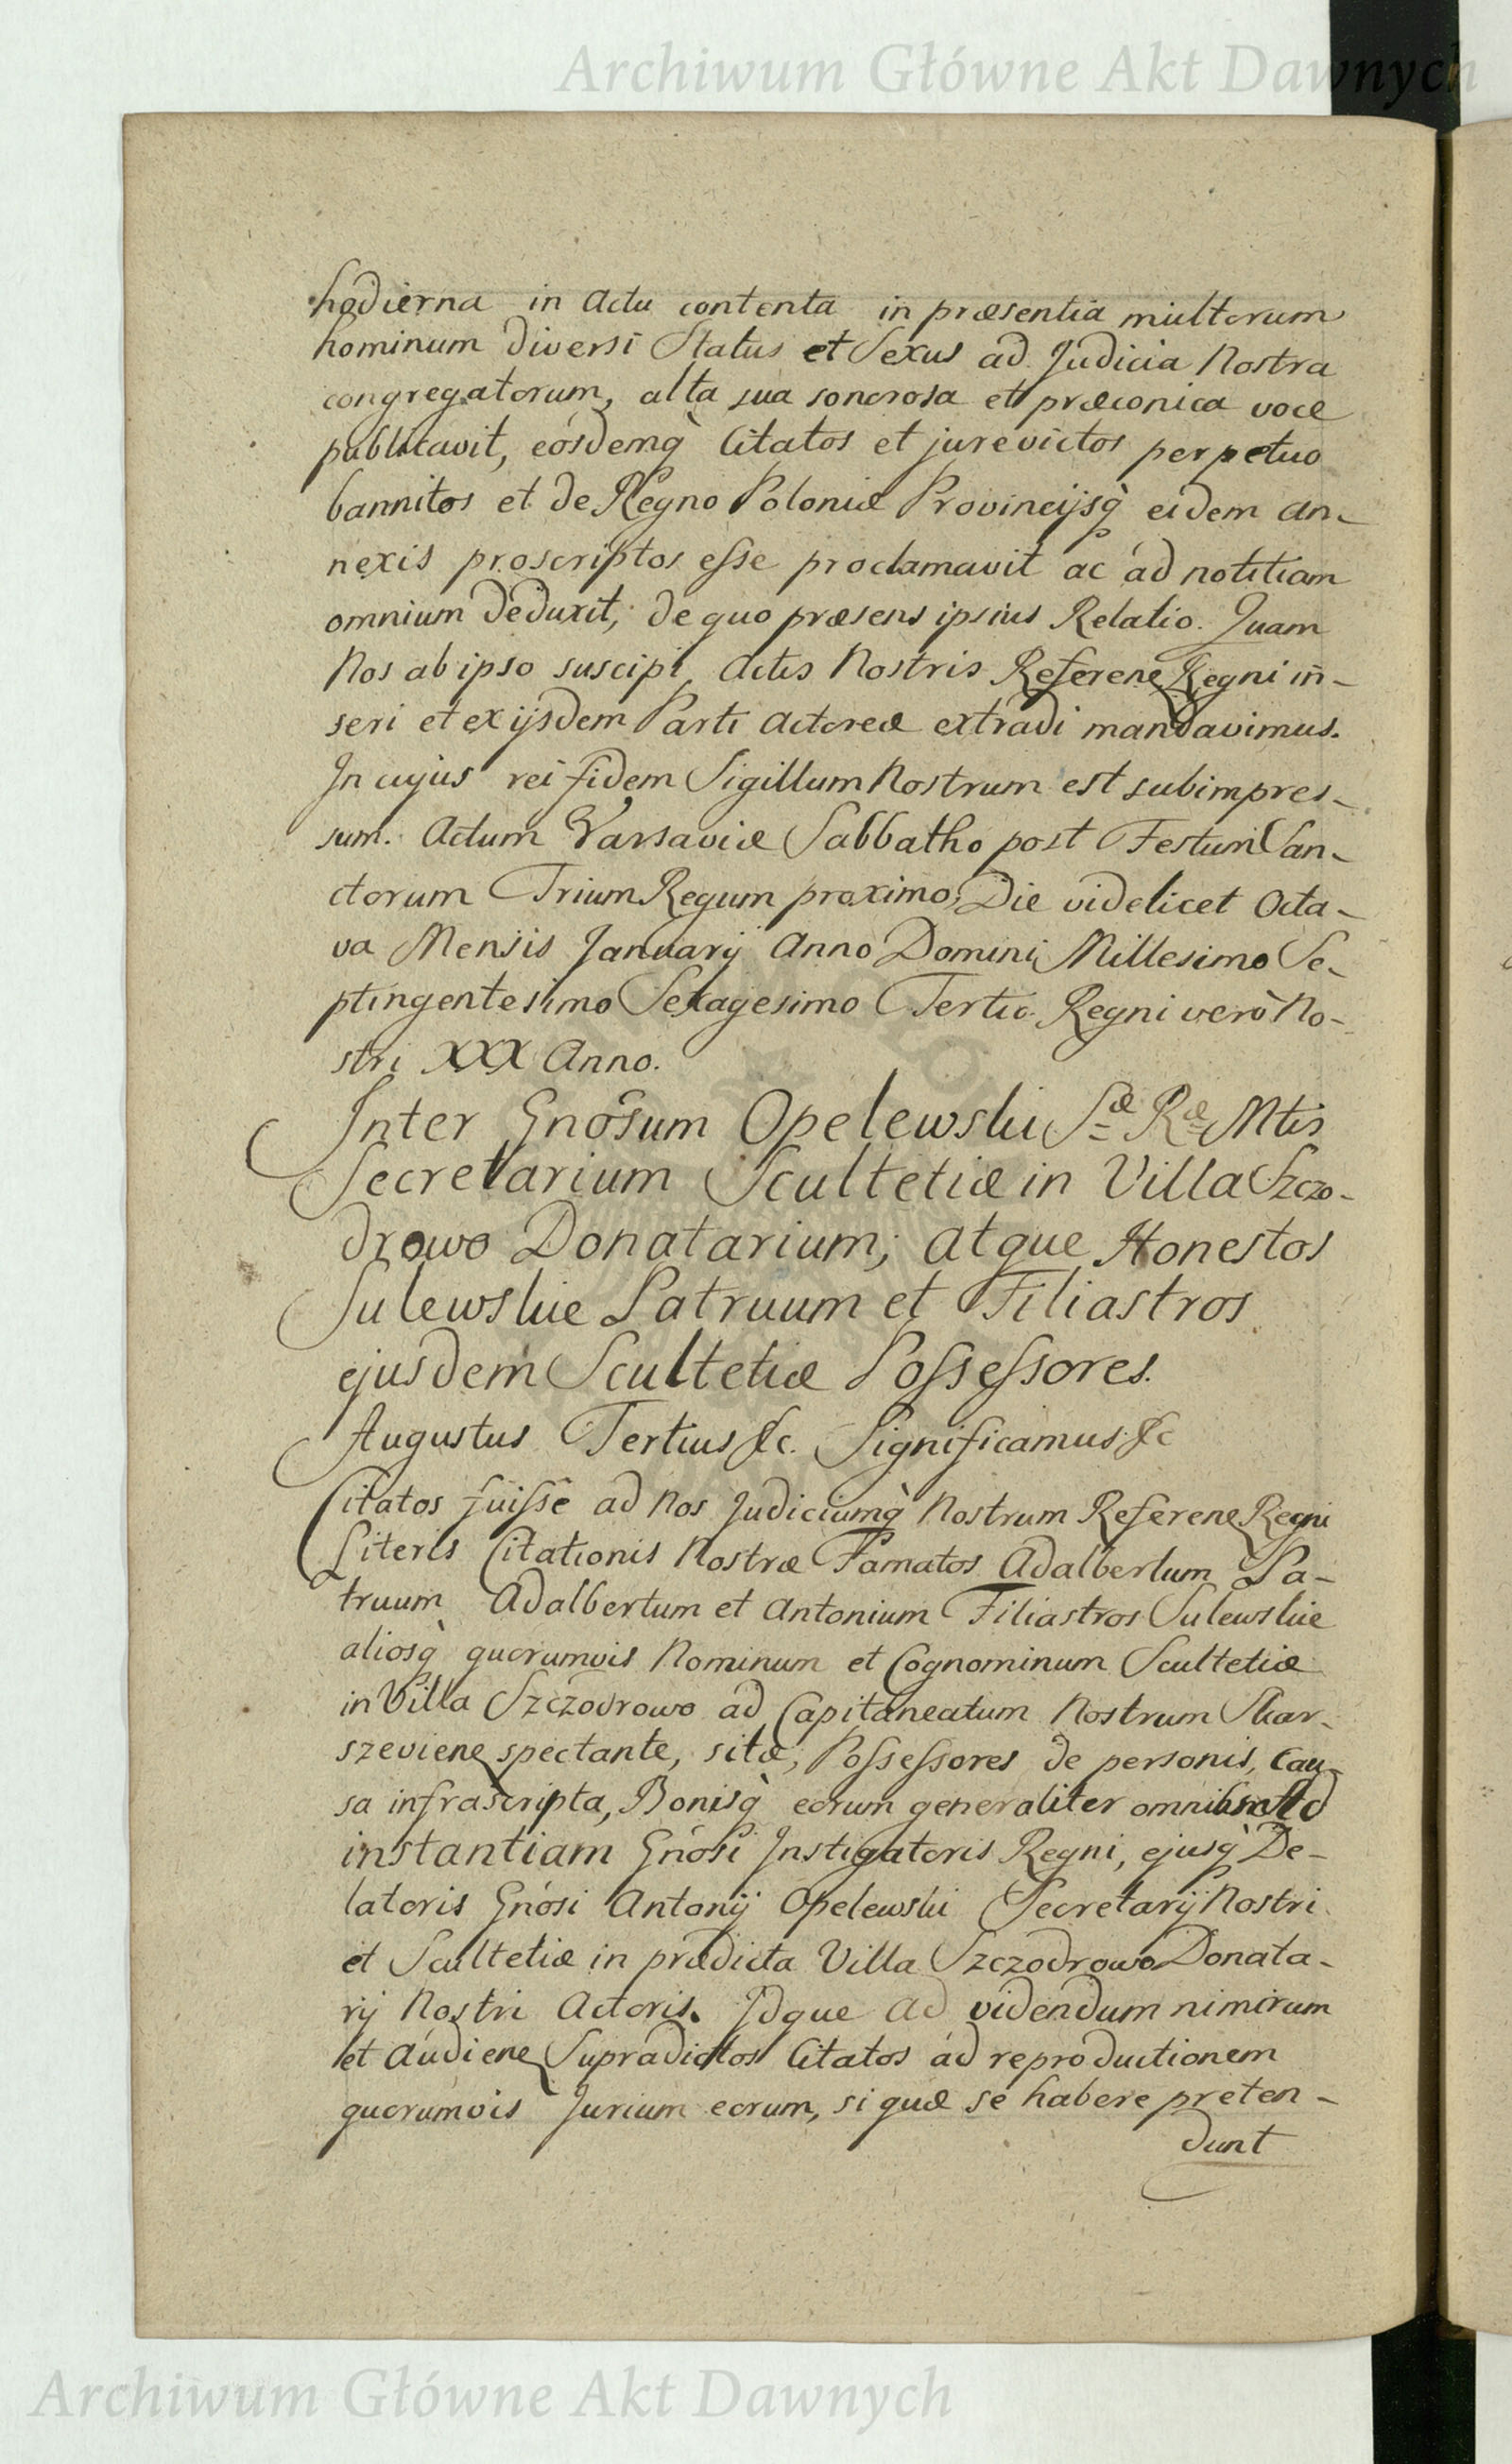 Archiwum Główne Akt Dawnych
hodierna in Actu contenta in præsentia multorum
hominum diversi Status et Sexus ad Judicia Nostra
congregatorum, alta sua sonorosa et præconica voce
publicavit, eosdemq̀ Citatos et jurevictos perpetuo
bannitos et de Regno Poloniæ Provincijsq̀ eidem an-
nexis proscriptos esse proclamavit ac ad notitiam
omnium deduxit; de quo præsens ipsius Relatio. Quam
Nos ab ipso suscipi, Actis Nostris Referen Regni in-
seri et ex ijsdem Parti Actoreæ extradi mandavimus.
In cujus rei fidem Sigillum Nostrum est subimpres-
sum. Actum Varsaviæ Sabbatho post Festum San-
ctorum Trium Regum proximo, Die videlicet Octa-
va Mensis Januarij Anno Domini Millesimo Se-
ptingentesimo Sexagesimo Tertio Regni verò No-
stri XXX Anno.
Inter Gnosum Opelewski Sæ Ræ Mtis
Secretarium Scultetiæ in Villa Szczo-
drowo Donatarium; atque Honestos
Sulewskie Patruum et Filiastros
ejusdem Scultetiæ Possessores.
Augustus Tertius &c. Significamus &c
Citatos fuisse ad Nos Judiciumq̀ Nostrum Referen Regni
Literis Citationis Nostræ Famatos Adalbertum Pa-
truum Adalbertum et Antonium Filiastros Sulewskie
aliosq̀ quorumvis Nominum et Cognominum Scultetiæ
in Villa Szczodrowo ad Capitaneatum Nostrum Skar-
szevien spectante, sitæ, Possessores de personis, Cau-
sa infrascripta, Bonisq̀ eorum generaliter omnibus Ad
instantiam Gnosi Instigatoris Regni, ejusq̀ De-
latoris Gnosi Antonij Opelewski Secretarij Nostri
et Scultetiæ in prædicta Villa Szczodrowo Donata-
rij Nostri Actoris. Idque ad videndum nimirum
et audien Supradictos Citatos ad reproductionem
quorumvis Jurium eorum, si quæ se habere preten-
dunt
Archiwum Główne Akt Dawnych